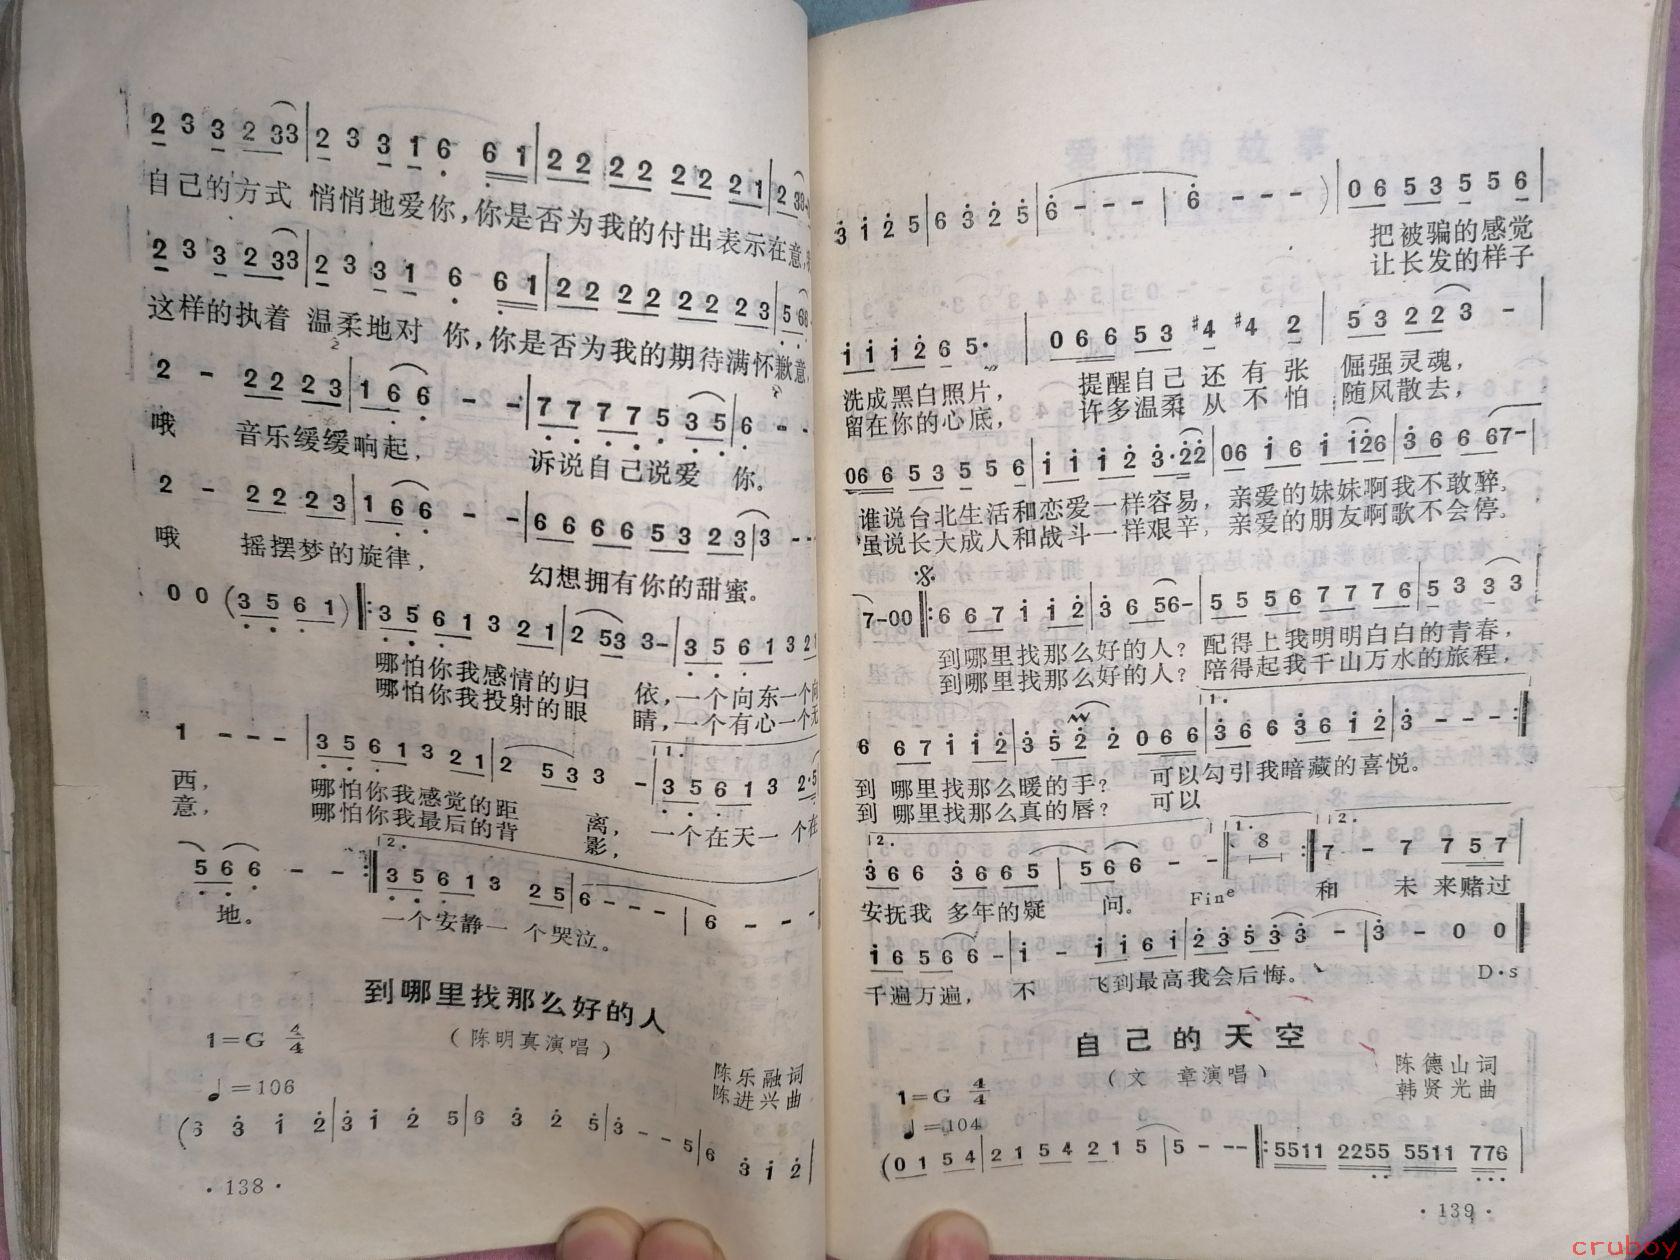 2 3 3 2 33 | 2 3 3 1 6 6 1 | 2 2 2 2 2 2 2 1 | 2 33
自己的方式 悄悄地爱你，你是否为我的付出表示在意，
2 3 3 2 33 | 2 3 3 1 6 6 1 | 2 2 2 2 2 2 2 3 | 5 66
这样的执着 温柔地对 你，你是否为我的期待满怀歉意，
2 - 2 2 2 3 | 1 6 6 - - | 7 7 7 7 5 3 5 | 6 - -
哦 音乐缓缓响起， 诉说自己说爱 你。
2 - 2 2 2 3 | 1 6 6 - - | 6 6 6 6 5 3 2 3 | 3 - -
哦 摇摆梦的旋律， 幻想拥有你的甜蜜。
0 0 (3 5 6 1) ‖: 3 5 6 1 3 2 1 | 2 5 3 3 - | 3 5 6 1 3 2 1
哪怕你我感情的归 依，一个向东一个向
哪怕你我投射的眼 睛，一个有心一个无
1 - - - | 3 5 6 1 3 2 1 | 2 5 3 3 - | 1. 3 5 6 1 3 2·5
西， 哪怕你我感觉的距 离， 一个在天一 个在
意， 哪怕你我最后的背 影，
5 6 6 - - :‖ 2. 3 5 6 1 3 2 5 | 6 - - - | 6 - -
地。 一个安静一 个哭泣。
到哪里找那么好的人
(陈明真演唱)
1=G 4/4
♩=106
陈乐融词
陈进兴曲
(6 3 1 2 | 3 1 2 5 | 6 3 2 5 | 3 - - 5 | 6 3 1 2 |
·138·
3 1 2 5 | 6 3 2 5 | 6 - - - | 6 - - - ) | 0 6 5 3 5 5 6 |
把被骗的感觉
让长发的样子
1 1 1 2 6 5· | 0 6 6 5 3 #4 #4 2 | 5 3 2 2 3 - |
洗成黑白照片， 提醒自己 还 有 张 倔强灵魂，
留在你的心底， 许多温柔 从 不 怕 随风散去，
06 6 5 3 5 5 6 | 1 1 1 2 3·22 | 06 1 6 1 126 | 3 6 6 67- |
谁说台北生活和恋爱一样容易，亲爱的妹妹啊我不敢醉。
虽说长大成人和战斗一样艰辛，亲爱的朋友啊歌不会停。
7-00 ‖: 6 6 7 1 1 2 | 3 6 56- | 5 5 5 6 7 7 7 6 | 5 3 3 3
到哪里找那么好的人？配得上我明明白白的青春，
到哪里找那么好的人？陪得起我千山万水的旅程，
6 6 7 1 1 2 | 3 5 2 2 0 6 6 | 1. 3 6 6 3 6 1 2 | 3 - - - :‖
到 哪里找那么暖的手？ 可以勾引我暗藏的喜悦。
到 哪里找那么真的唇？ 可以
2. 3 6 6 3 6 6 5 | 5 6 6 - - ‖ 1. 8 :‖ 2. 7 - 7 7 5 7 |
安抚我 多年的疑 问。 Fine 和 未 来赌过
1 6 5 6 6 - | 1 - 1 1 6 1 | 2 3 5 3 3 - | 3 - 0 0 ‖
千遍万遍， 不 飞到最高我会后悔。 D·s
自己的天空
(文 章演唱)
陈德山词
韩贤光曲
1=G 4/4
♩=104
(0 1 5 4 | 2 1 5 4 2 1 5 | 5 - - - ‖: 5511 2255 5511 776 |
·139·
cruboy